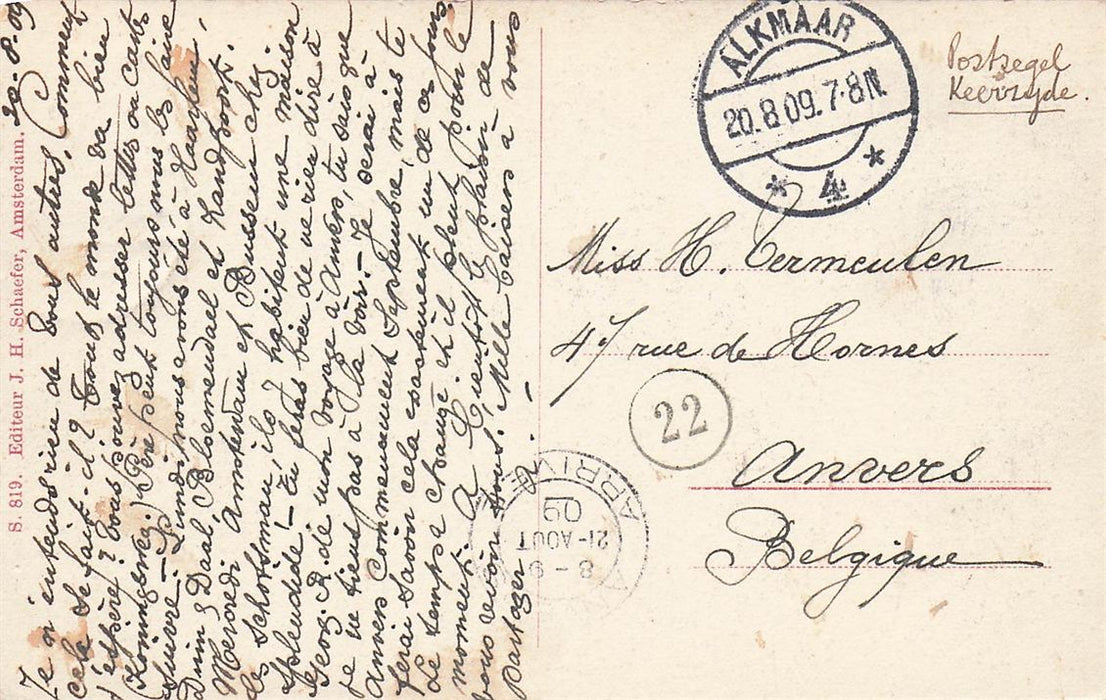 20.8.09
Je n'entends rien de vous autres. Comment
cela se fait-il? Tout le monde va bien
j'espère? Vous pouvez adresser lettres ou carte
(Koningsweg.) Père peut toujours nous les faire
suivre. - Lundi nous avons été à Haarlem,
Duin & Daal, Bloemendael et Zandfoort.
Mercredi Amsterdam et Bussum chez
les Schotsman, ils habitent une maison
splendide! - Tu feras bien de ne rien dire à
Georg. R. de mon voyage à Anvers, tu sais que
je ne tiens pas à la voir. - Je serai à
Anvers commencement Septembre, mais te
ferai savoir cela exactement un de ces jours
Le temps change et il pleut pour le
moment. A bientôt le plaisir de
vous revoir tous. Mille baisers à vous
partager. -
S. 819. Editeur J. H. Schaefer, Amsterdam.
ALKMAAR
20.8.09.7-8N.
* 4 *
Postzegel
Keerzijde.
Miss H. Vermeulen
47 rue de Hornes
22
Anvers
Belgique
8-9
21-AOUT
09
ARRIVÉE